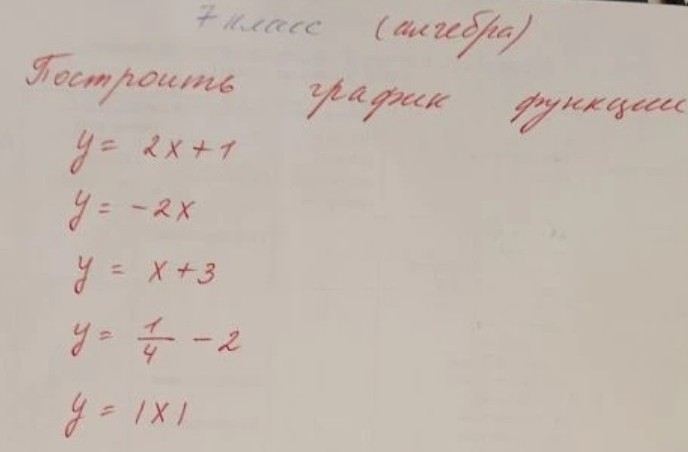 7 класс (алгебра)
Построить график функции
y = 2x+1
y = -2x
y = x+3
y = 1/4 - 2
y = |x|